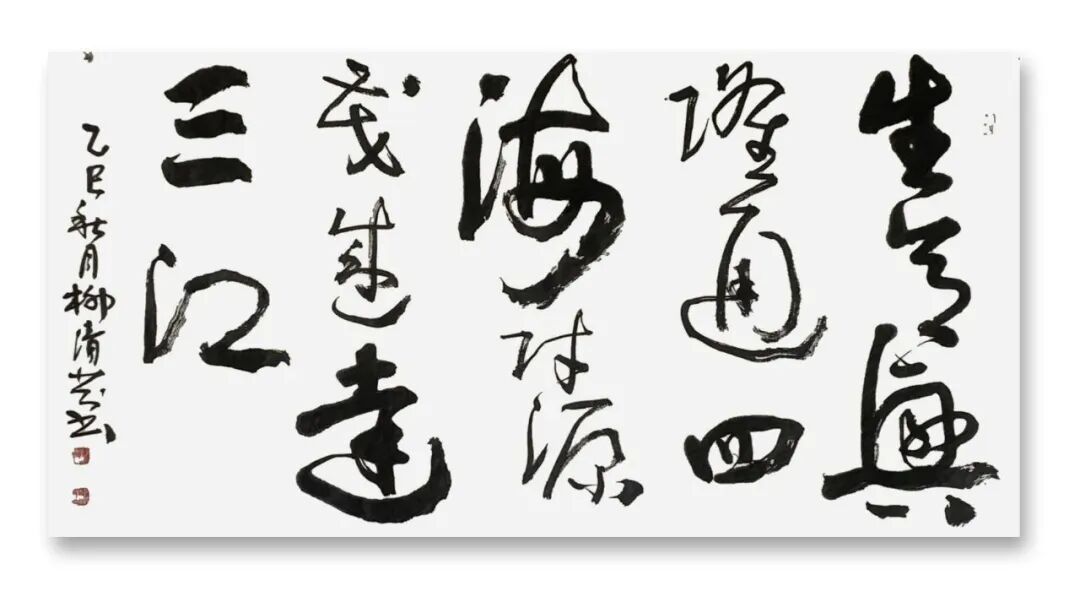 生意興
隆通四
海財源
茂盛達
三江
乙巳秋月柳清书